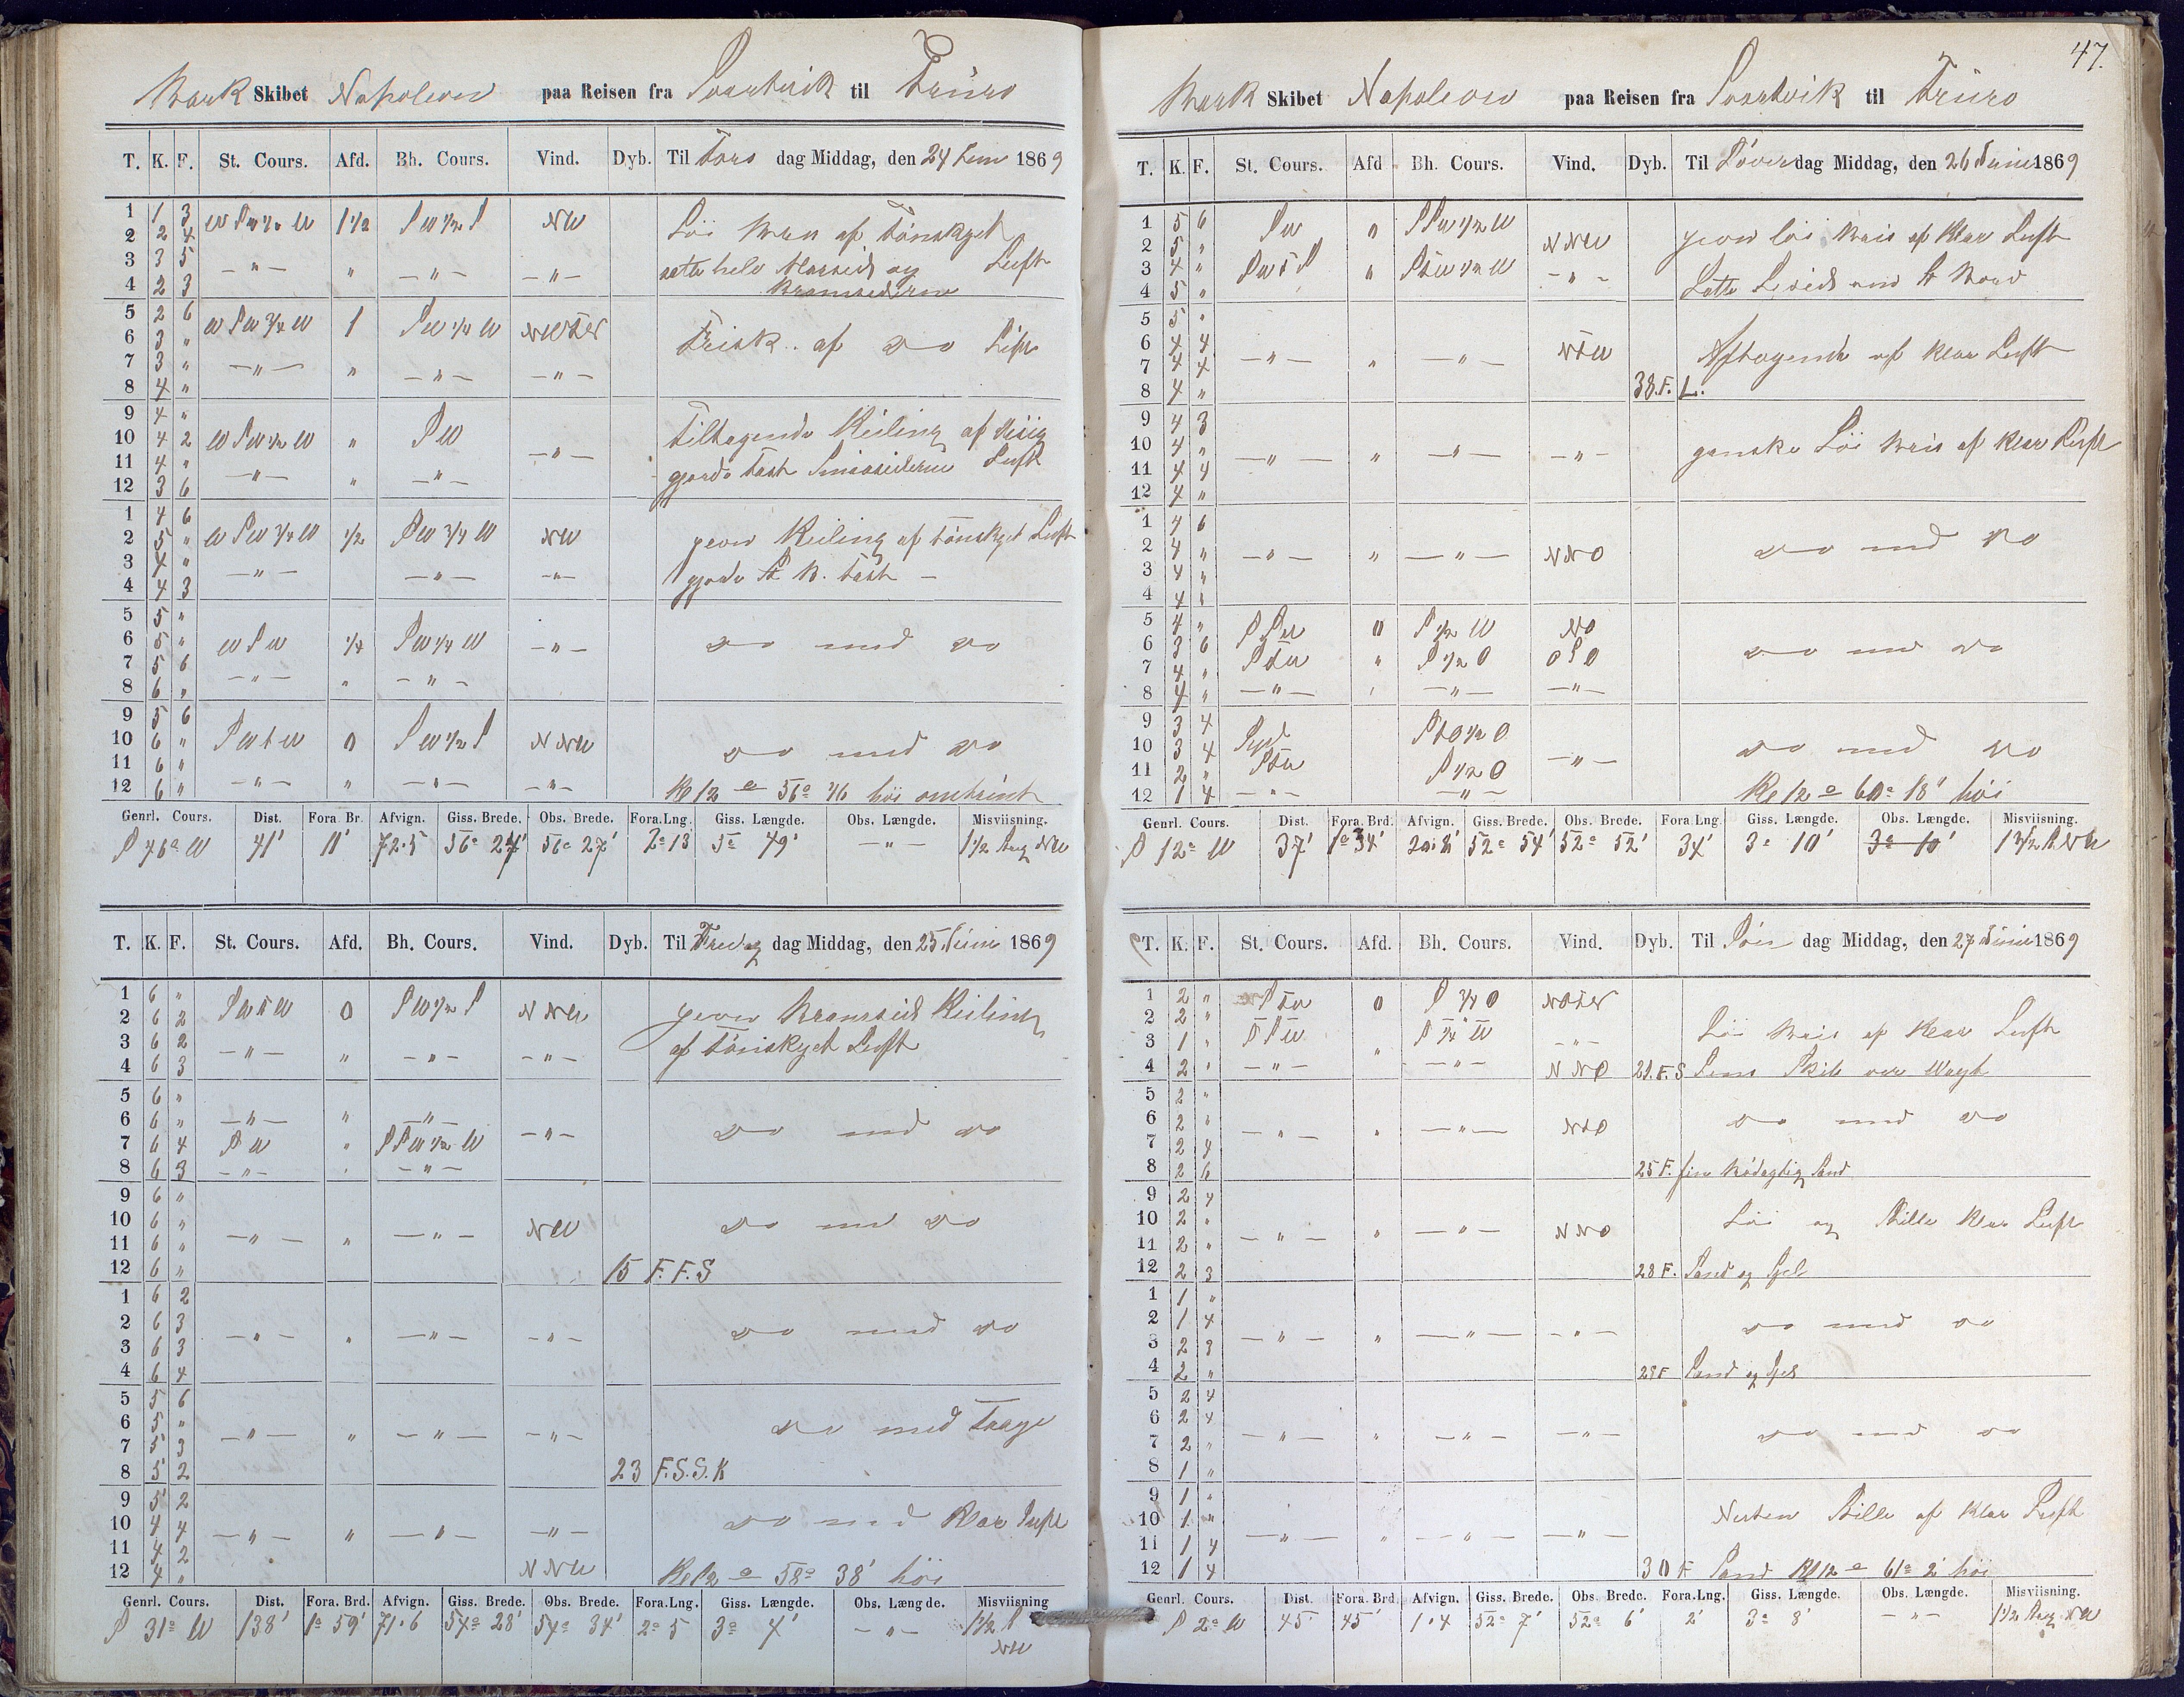 Bark Skibet Napoleon paa Reisen fra Svartvik til Truro
T. K. F. St. Cours. Afd. Bh. Cours. Vind. Dyb. Til Tors dag Middag, den 24 Juni 1869
1 1 3 W S W ½ W 1½ S W ½ S NW Löi Bris af tönskyet
2 2 4
3 3 5 – " – " – " – – " – satte hele Mersseil og Luft
4 2 3 Bramseilerne
5 2 6 W S W ¾ W 1 S W ¼ W NWTW
6 3 " Frisk af do Luft
7 3 " – " – " – " – – " –
8 4 "
9 4 "
10 4 2 W S W ½ W " S W – " – Tiltagende Kuling af disig
11 4 " – " – " – " – gjorde fast Smaaseilerne Luft
12 3 6
1 4 6
2 5 " W S W ¾ W ½ S W ¾ W NW jevn Keiling af tönskyet Luft
3 4 "
4 4 3 – " – – " – – " – gjorde St B. fast –
5 5 "
6 5 " W S W ¼ S W ¼ W – " – do med do
7 5 6
8 6 " – " – " – " –
9 5 6
10 6 " S W t W 0 S W ½ S N NW do med do
11 6 "
12 6 " – " – " – " – – " – Kl 12 = 56° 46 höi omtrent
Genrl. Cours. Dist. Fora Br. Afvign. Giss. Brede. Obs. Brede. Fora.Lng. Giss. Længde. Obs. Længde. Misviisning.
S 76° W 41' 11' 72.5 56° 24' 56° 27' 2° 13 5° 49' – " – 1½ Streg NW
T. K. F. St. Cours. Afd. Bh. Cours. Vind. Dyb. Til Fredag dag Middag, den 25 Juni 1869
1 6 " S W t W 0 S W ½ S N NW jevn Bramseils Keiling
2 6 2
3 6 2 – " – " – " – – " – af tönskyet Luft
4 6 3
5 6 "
6 6 " – " – " – " –
7 6 4 S W " S S W ½ W – " – do med do
8 6 3 – " – " – " –
9 6 "
10 6 " NW do med do
11 6 " – " – " – " –
12 6 " 15 F. F. S
1 6 2
2 6 3 do med do
3 6 3 – " – " – " – – " –
4 6 4
5 5 6
6 5 " do med Taage
7 5 3 – " – " – " – – " –
8 5 2 23 F. S. S. K
9 5 2
10 4 4 – " – " – " – – " – do med klar Luft
11 4 2
12 4 " N NW Kl 12 = 58° 38' höi
Genrl. Cours. Dist. Fora. Brd. Afvign. Giss. Brede. Obs. Brede. Fora.Lng. Giss. Længde. Obs. Længde. Misviisning
S 31° W 138' 1° 59' 71.6 54° 28' 54° 34' 2° 5 3° 4' – " – 1½ S NW
47.
Bark Skibet Napoleon paa Reisen fra Svartvik til Truro
T. K. F. St. Cours. Afd Bh. Cours. Vind. Dyb. Til Löver dag Middag, den 26 Juni 1869
1 5 6 S W 0 S S W ½ W jevn löi Bris af klar Luft
2 5 " N NW
3 4 " S W t S " S t W ½ W – " –
4 5 " Satte Leseils om St Bord
5 5 "
6 4 4 NtW Aftagende af klar Luft
7 4 4 – " – " – " –
8 4 " 38. F. L.
9 4 3
10 4 " ganske Löi Bris af klar Luft
11 4 4 – " – " – " – – " –
12 4 "
1 4 6
2 4 " – " – " – " – N NO do med do
3 4 "
4 4 "
5 4 " S S W 0 S ½ W NO
6 3 6 S t W " S ½ O O S O do med do
7 4 "
8 4 " – " – " – " – – " –
9 3 4 Syd S t O ½ O
10 3 4 do med do
11 2 " S t W S ½ O – " –
12 1 4 – " – – " – Kl 12 = 60° 18' höi
Genrl. Cours. Dist. Fora. Brd. Afvign. Giss. Brede. Obs. Brede. Fora Lng. Giss. Længde. Obs. Længde. Misviisning.
S 12° W 37' 52° 54' 52° 52' 34' 3° 10' 3° 10'
T. K. F. St. Cours. Afd. Bh. Cours. Vind. Dyb. Til Sön dag Middag, den 27 Juni 1869
1 2 " S t W 0 S ¾ O NOTN
2 2 " Löi Bris af klar Luft
3 1 " S S W " S ¼ W – " –
4 2 " – " – – " – N NO 21. F. S Lens Skib ver Vagt
5 2 "
6 2 " – " – " – " – NtO do med do
7 2 4
8 2 6 25 F. fin Sand
9 2 4
10 2 " – " – " – " – N NO Löi og Stille klar Luft
11 2 "
12 2 3 28 F. Sand og Sjel
1 1 "
2 1 4 – " – " – " – – " – do med do
3 2 3
4 2 " 28 F Sand og Sjel
5 2 4
6 2 4 – " – " – " – – " – do med do
7 2 "
8 1 "
9 1 "
10 1 " Nesten Stille af klar Luft
11 1 4 – " – " – " – – " –
12 1 4 30 F Sand Kl 12 = 61° 2' höi
Genrl. Cours. Dist. Fora. Brd. Afvign. Giss. Brede. Obs. Brede. Fora.Lng. Giss. Længde. Obs. Længde. Misviisning.
S 2° W 45' 45' 1.4 52° 7' 52° 6' 2' 3° 8' – " – 1½ Streg NW